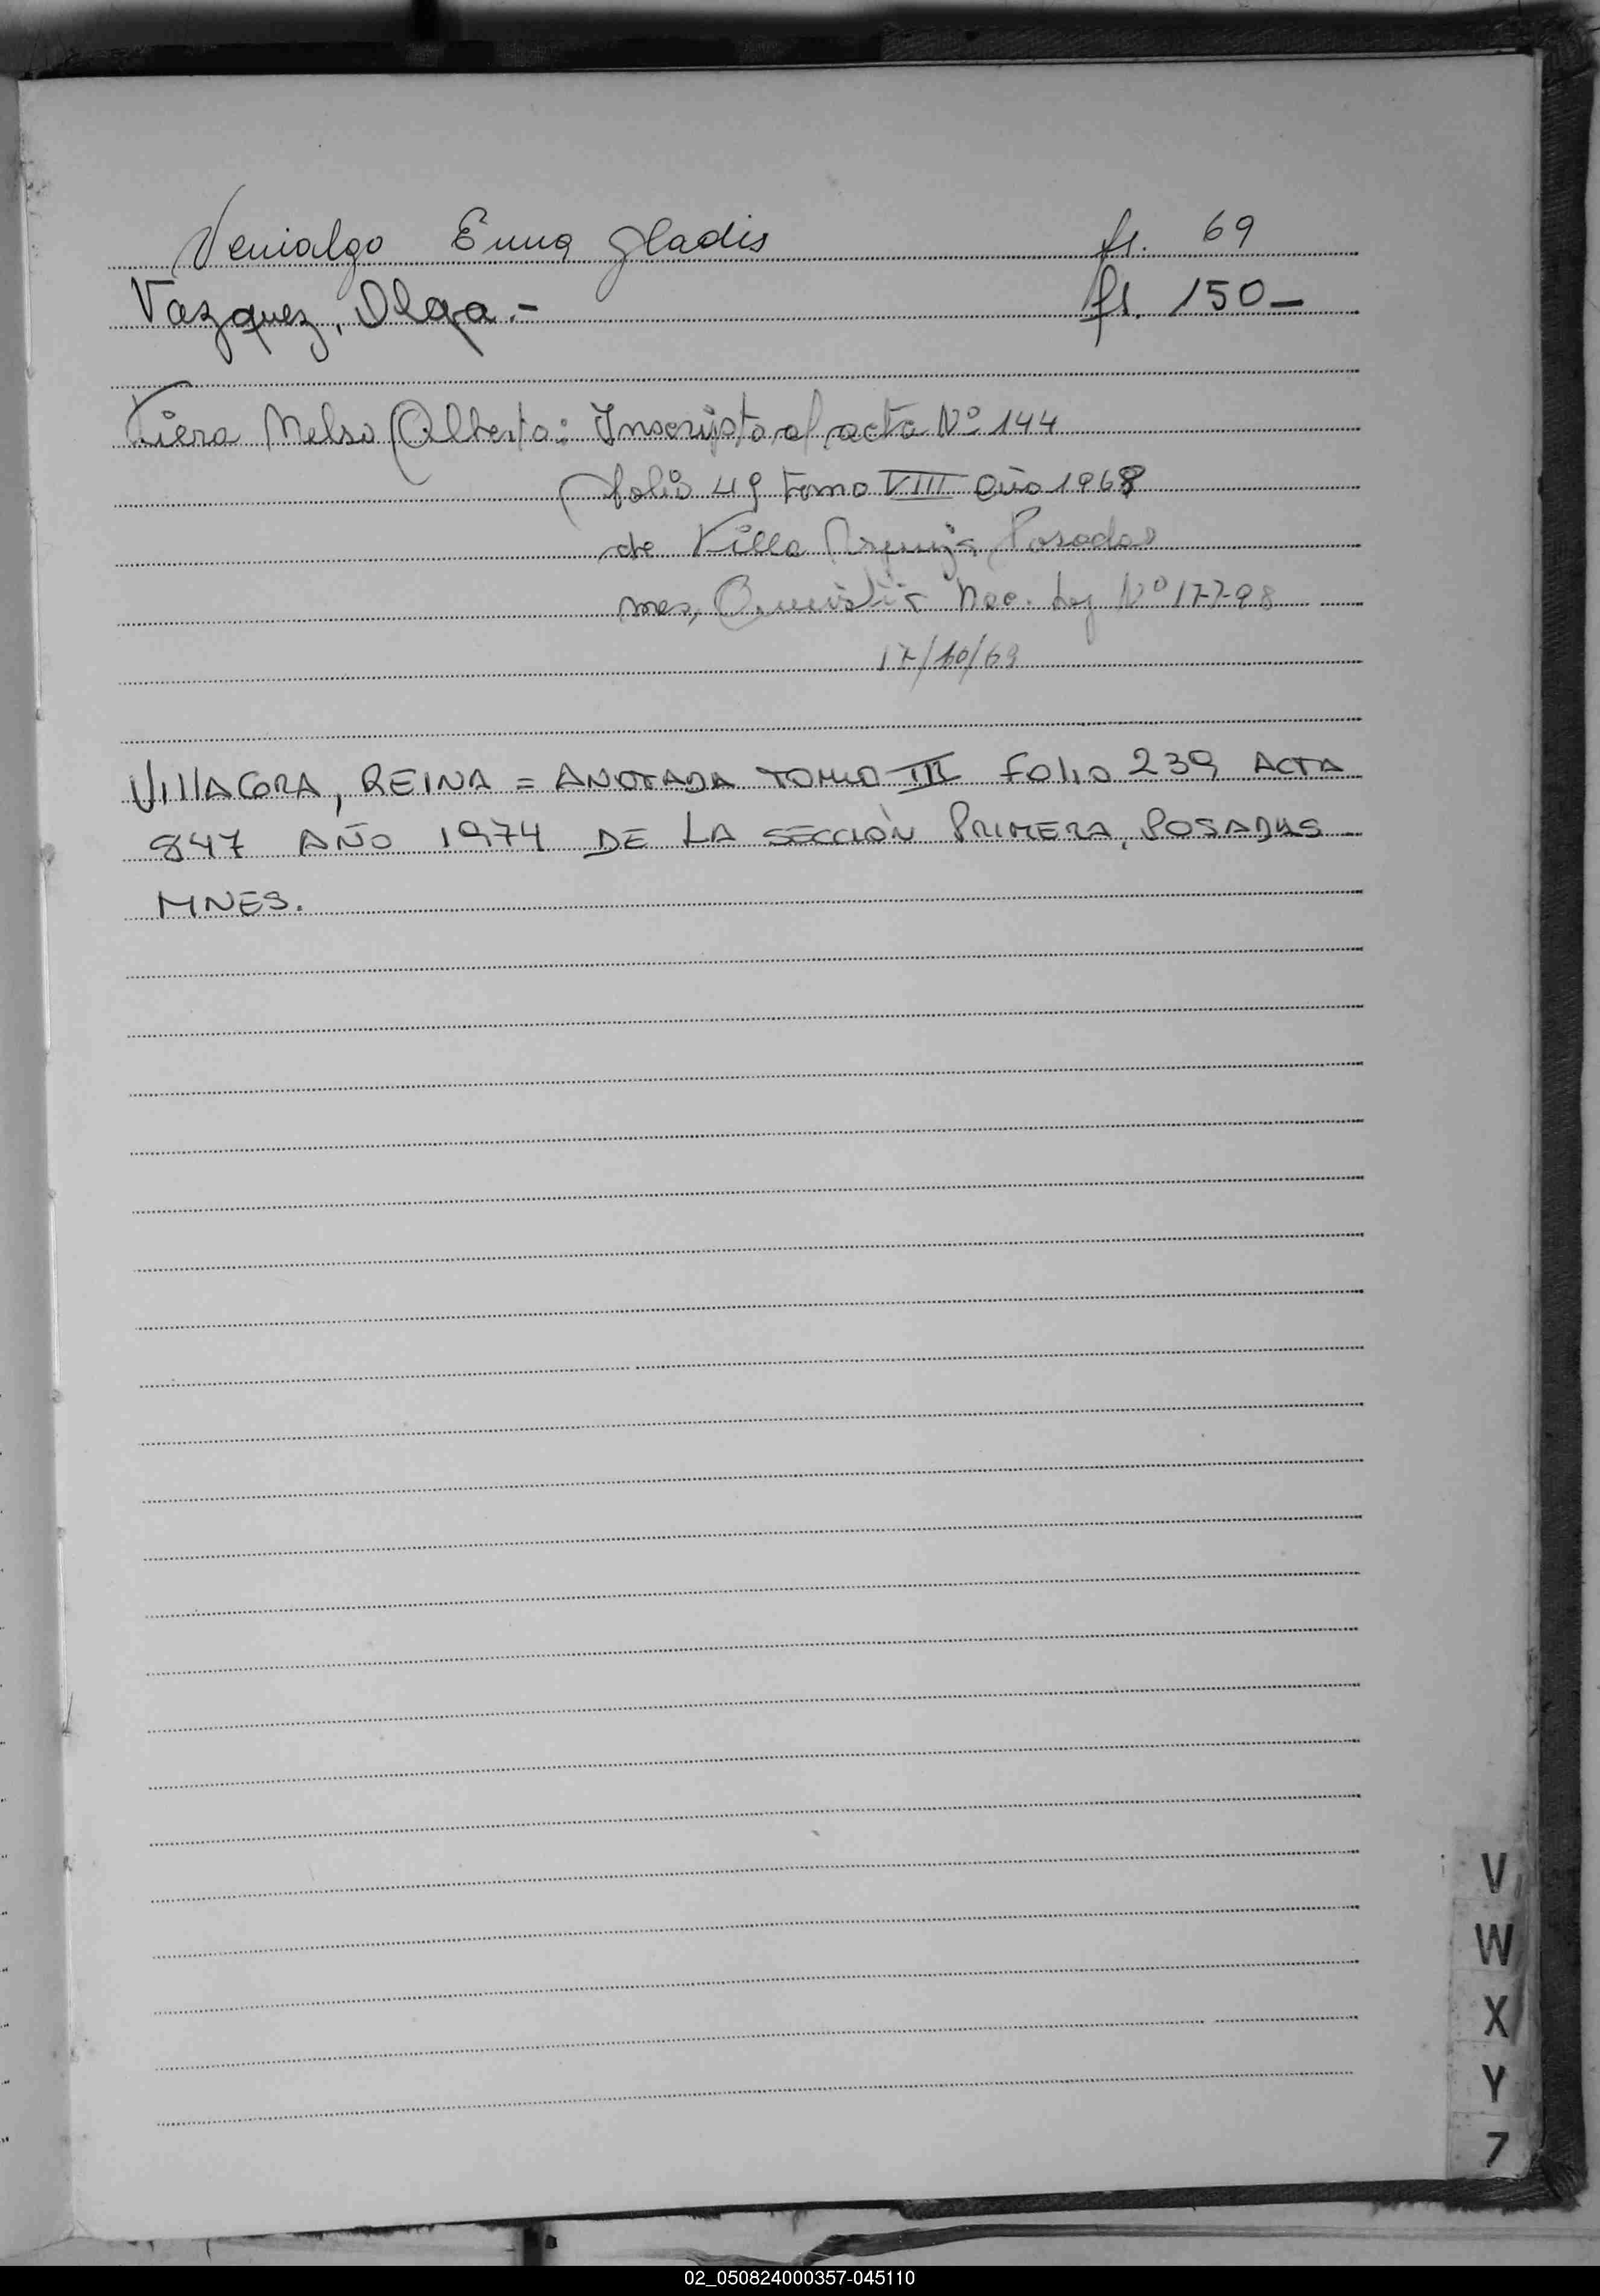 Venialgo Enma Gladis fs. 69
Vazquez, Olga.- fs. 150-
Viera Nelso Alberto: Inscripto al acta Nº 144
folio 49 tomo VIII año 1968
de Villa Posadas
mes, Amnistia Nac. Ley Nº 17798
17/10/69
VIllAGRA, REINA = ANOTADA TOMO III FOlIO 239 ACTA
847 AÑO 1974 DE LA SECCIÓN PRIMERA, POSADAS
MNES.
V
W
X
Y
Z
02_050824000357-045110